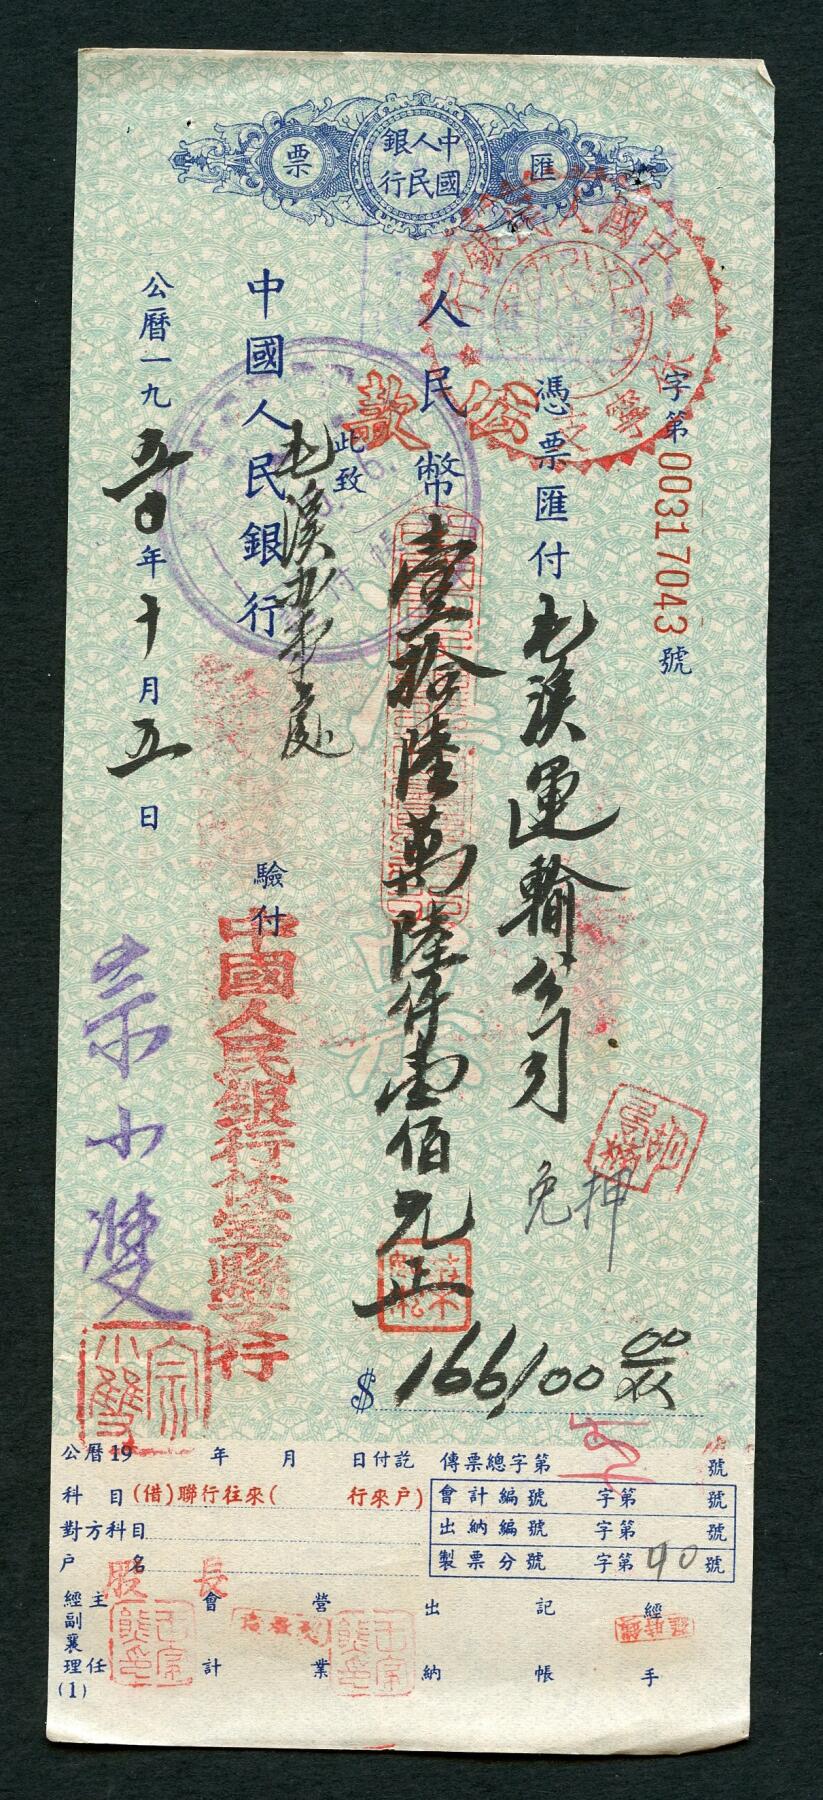 中國人民銀行
匯票
字第0031704​3號
憑票匯付屯溪運輸公司
公款
人民幣壹拾陸萬陸仟壹佰元正
$166,100 00
免押
匯票
此致
中國人民銀行屯溪办事處
驗付
中國人民銀行休寧縣支行
公曆一九五0年十月五日
宗小雙
宗小雙
公曆19 年 月 日付訖 傳票總字第 號
科目(借)聯行往來( 行來戶)
對方科目
戶名
會計編號 字第 號
出納編號 字第 號
製票分號 字第40號
股長
經副襄理 主任 會計 營業 出納 記帳 經手
(1)